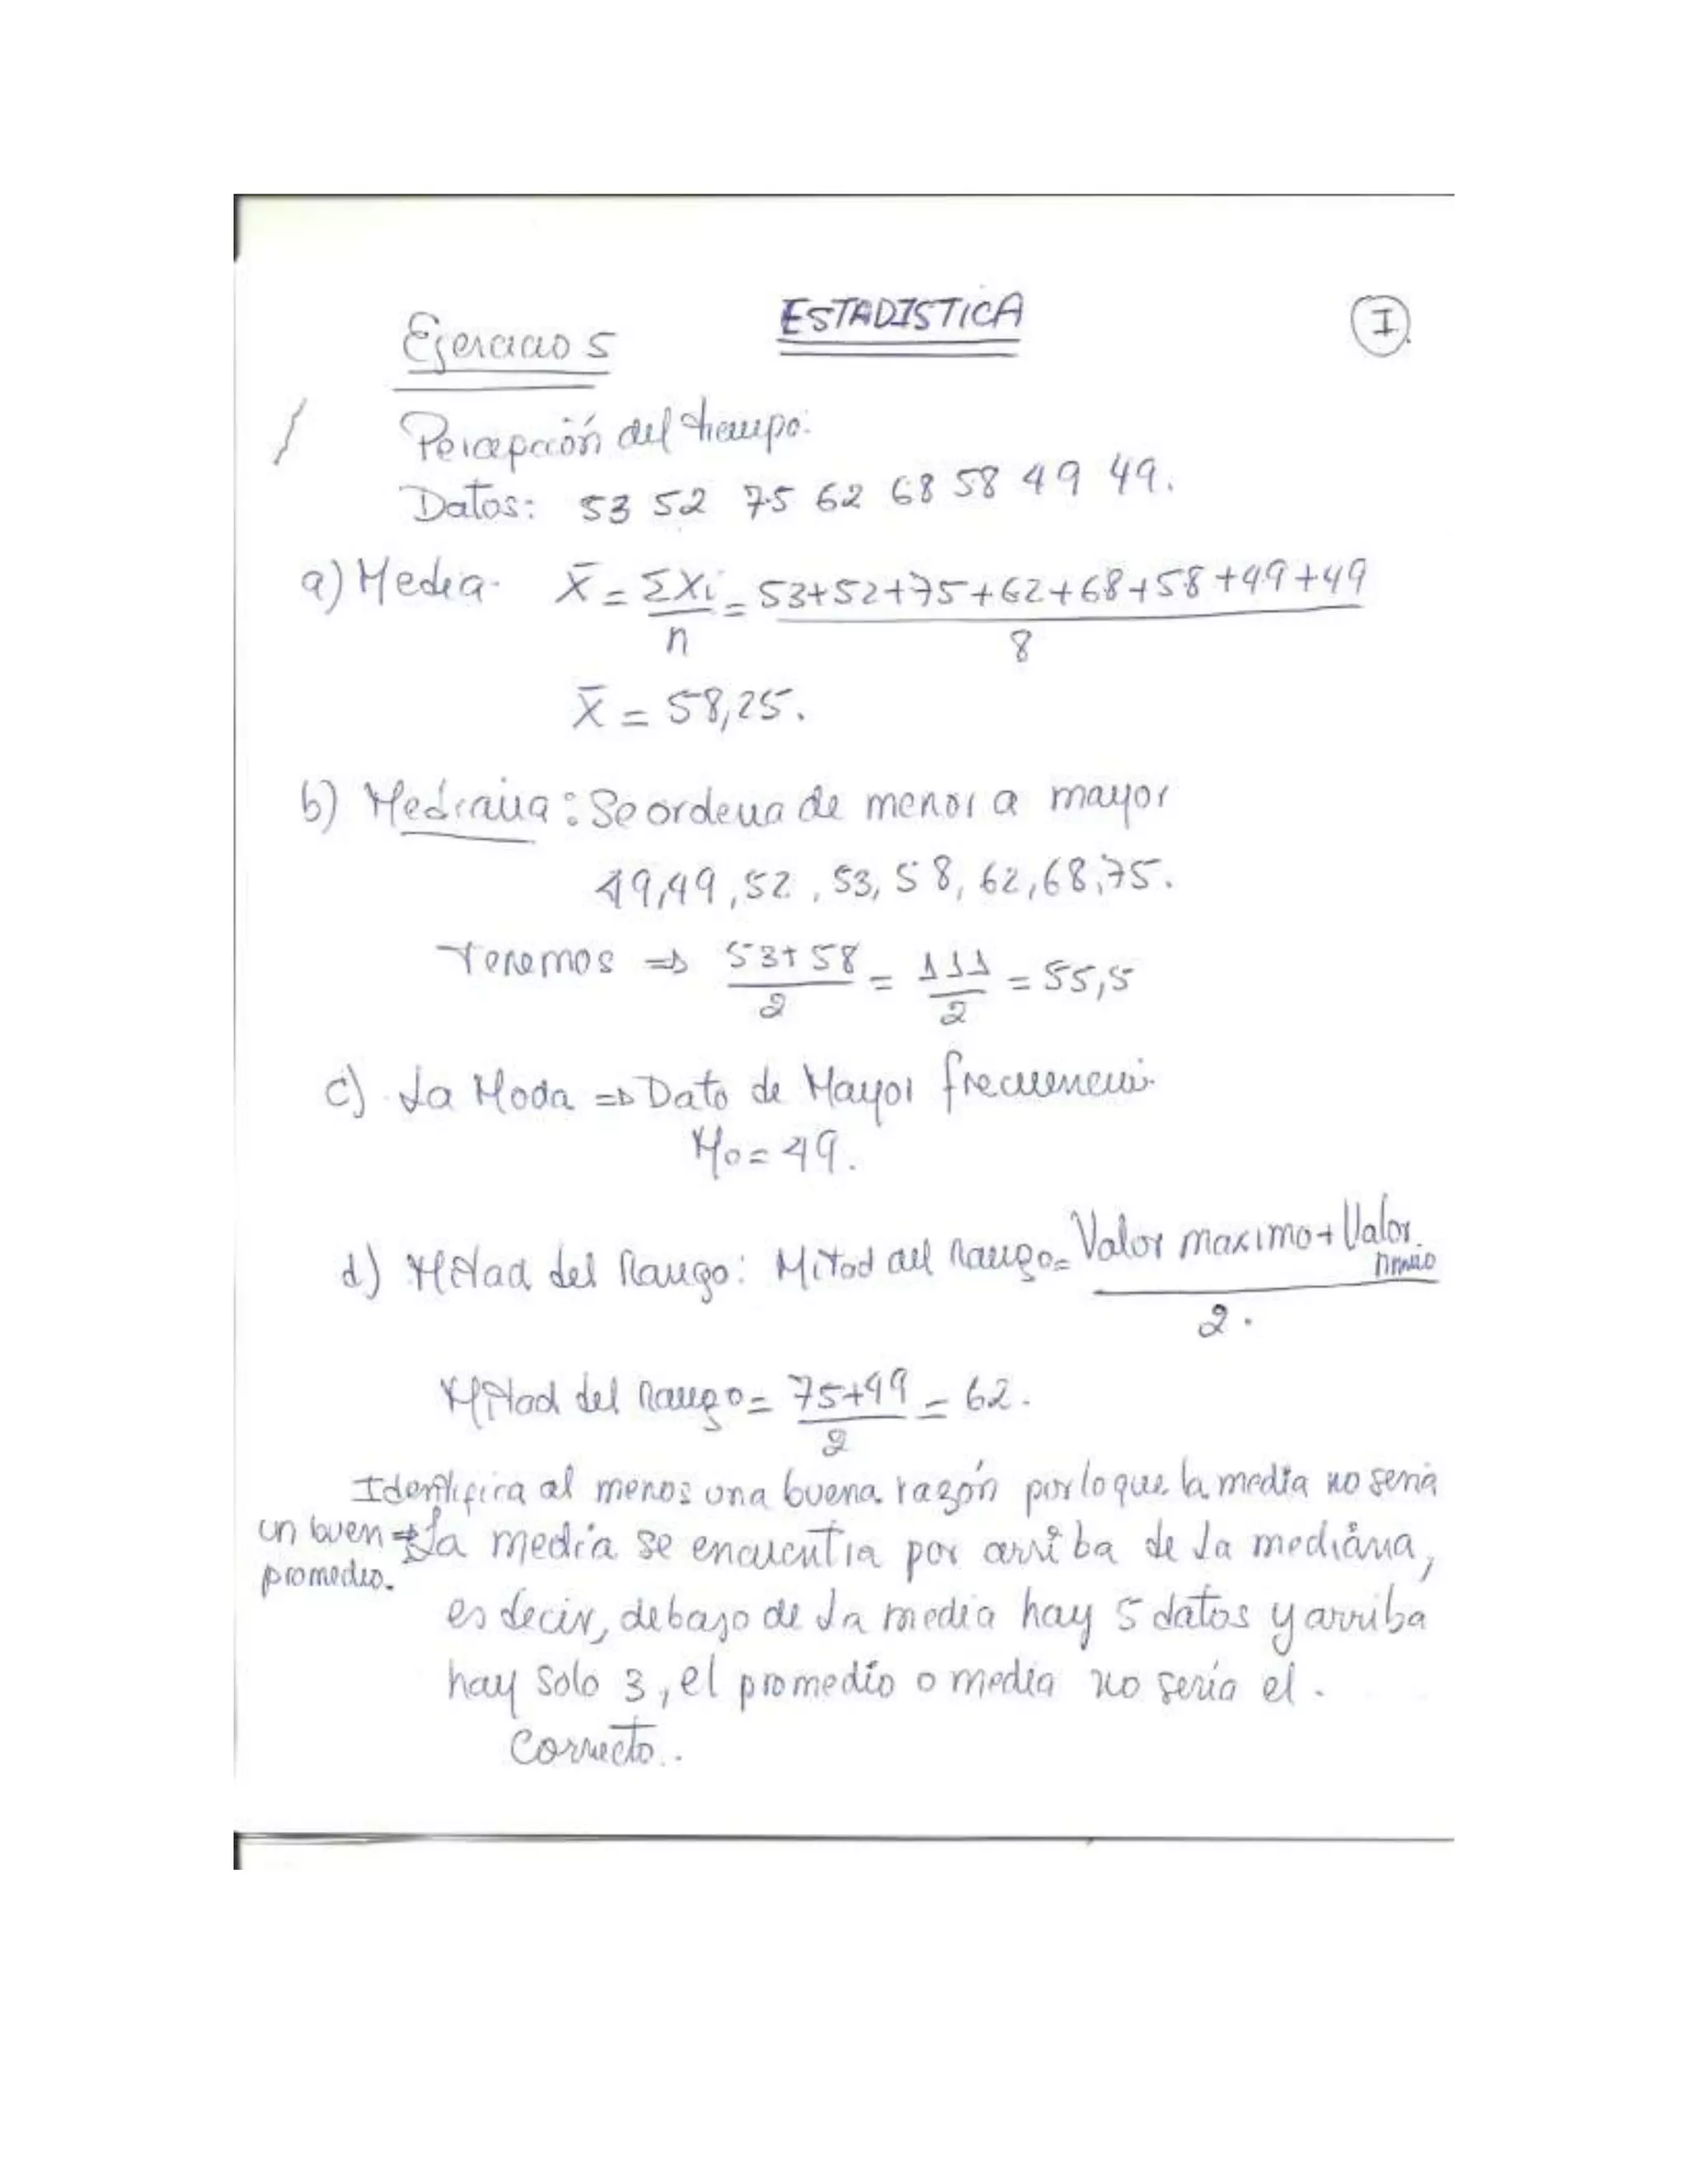 ESTADISTICA
I
Ejercicio 5
Percepción del tiempo:
Datos: 53 52 75 62 68 58 49 49.
a) Media. X̄ = ΣXi / n = 53+52+75+62+68+58+49+49 / 8
X̄ = 58,25.
b) Mediana: Se ordena de menor a mayor
49,49,52,53,58,62,68,75.
Tenemos ⇒ 53+58 / 2 = 111 / 2 = 55,5
c) La Moda ⇒ Dato de Mayor frecuencia
Mo = 49.
d) Mitad del Rango: Mitad del rango = Valor maximo + Valor / 2.
Mitad del rango = 75+49 / 2 = 62.
Identifica al menos una buena razón por lo que la media no seria
un buen ⇒ La media se encuentra por arriba de la mediana,
promedio.
es decir, debajo de la media hay 5 datos y arriba
hay solo 3, el promedio o media no sería el.
correcto..